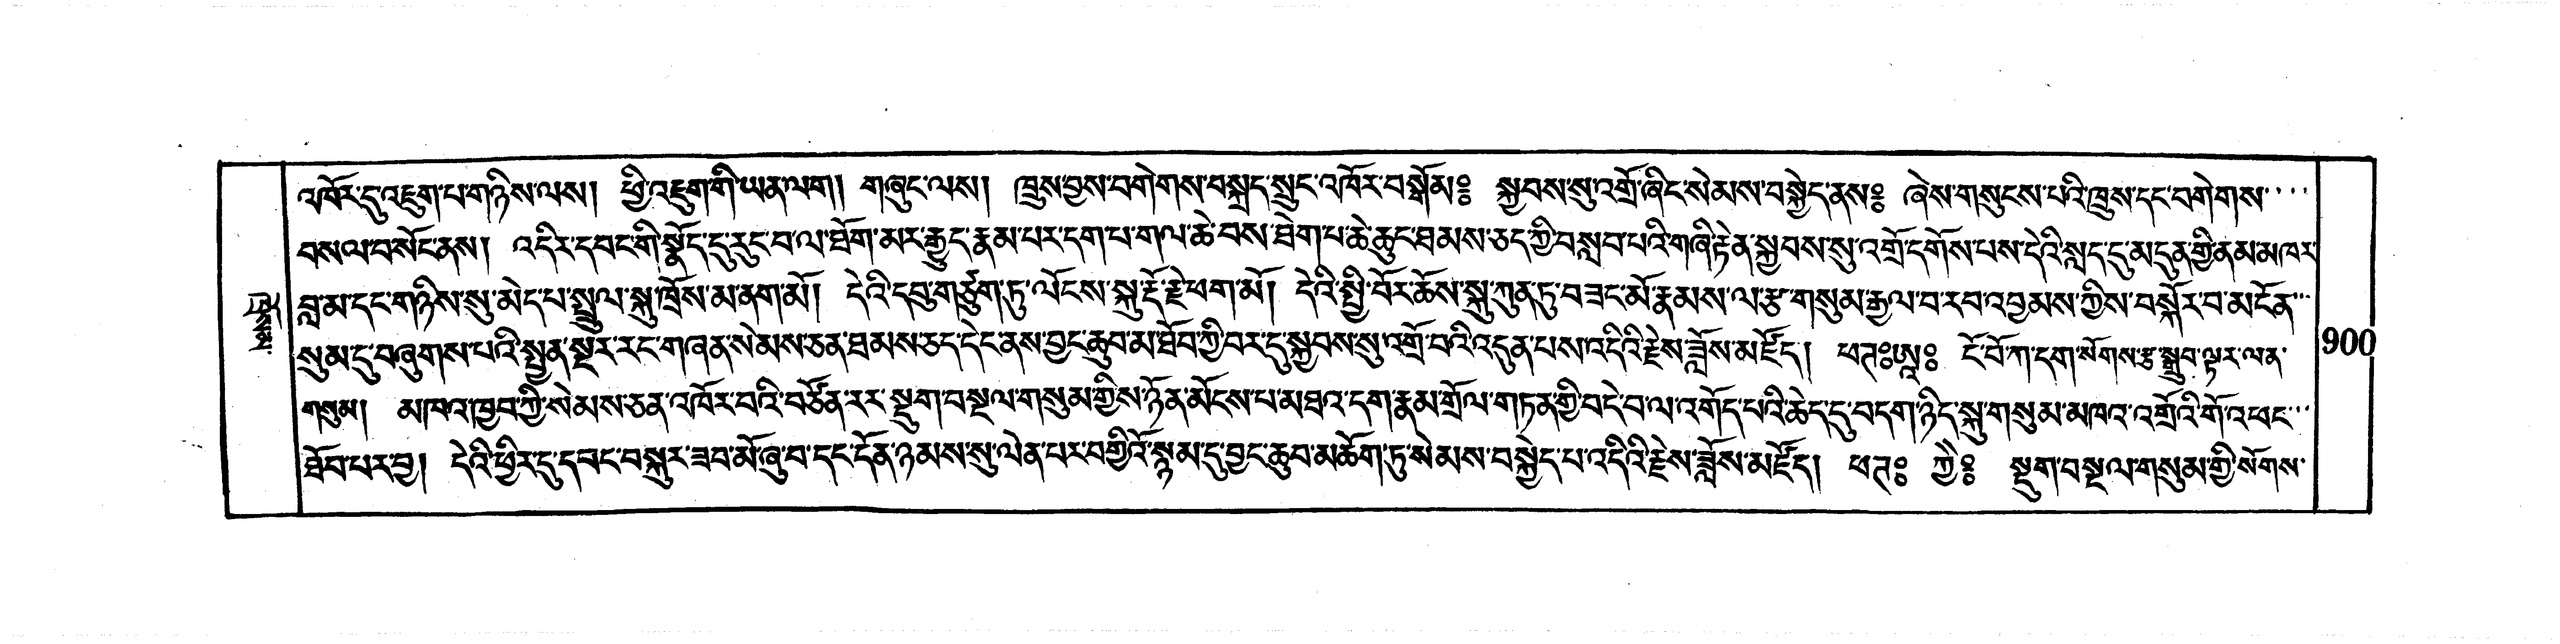 འཁོར་དུ་འཇུག་པ་གཉིས་ལས། ཕྱི་འཇུག་གི་ཡན་ལག། གཞུང་ལས། ཁྲུས་བྱས་བགེགས་བསྐྲད་སྲུང་འཁོར་བསྒོམ༔ སྐྱབས་སུ་འགྲོ་ཞིང་སེམས་བསྐྱེད་ནས༔ ཞེས་གསུངས་པའི་ཁྲུས་དང་བགེགས་
བསལ་བསོང་ནས། འདིར་དབང་གི་སྣོད་དུ་རུང་བ་ལ་ཐོག་མར་རྒྱུད་རྣམ་པར་དག་པ་གལ་ཆེ་བས་ཐེག་པ་ཆེ་ཆུང་ཐམས་ཅད་ཀྱི་བསླབ་པའི་གཞི་རྟེན་སྐྱབས་སུ་འགྲོ་དགོས་པས་དེའི་སླད་དུ་མདུན་གྱི་ནམ་མཁར་
བླ་མ་དང་གཉིས་སུ་མེད་པ་སྤྲུལ་སྐུ་ཁྲོས་མ་ནག་མོ། དེའི་དབུ་གཙུག་ཏུ་ལོངས་སྐུ་རྡོ་རྗེ་ཕག་མོ། དེའི་སྤྱི་བོར་ཆོས་སྐུ་ཀུན་ཏུ་བཟང་མོ་རྣམས་ལ་རྩ་གསུམ་རྒྱལ་བ་རབ་འབྱམས་ཀྱིས་བསྐོར་བ་མངོན་
སུམ་དུ་བཞུགས་པའི་སྤྱན་སྔར་རང་གཞན་སེམས་ཅན་ཐམས་ཅད་དེང་ནས་བྱང་ཆུབ་མ་ཐོབ་ཀྱི་བར་དུ་སྐྱབས་སུ་འགྲོ་བའི་འདུན་པས་འདིའི་རྗེས་ཟློས་མཛོད། ཕཊ༔ཨཱ༔ ངོ་བོ་ཀ་དག་སོགས་རྩ་སྒྲུབ་ལྟར་ལན་
གསུམ། མཁའ་ཁྱབ་ཀྱི་སེམས་ཅན་འཁོར་བའི་བཙོན་རར་སྡུག་བསྔལ་གསུམ་གྱིས་ཉོན་མོངས་པ་མཐའ་དག་རྣམ་གྲོལ་གཏན་གྱི་བདེ་བ་ལ་འགོད་པའི་ཆེད་དུ་བདག་ཉིད་སྐུ་གསུམ་མཁའ་འགྲོའི་གོ་འཕང་
ཐོབ་པར་བྱ། དེའི་ཕྱིར་དུ་དབང་བསྐུར་ཟབ་མོ་ཞུ་བ་དང་དོན་ཉམས་སུ་ལེན་པར་བགྱིའོ་སྙམ་དུ་བྱང་ཆུབ་མཆོག་ཏུ་སེམས་བསྐྱེད་པ་འདིའི་རྗེས་ཟློས་མཛོད། ཕཊ༔ ཀྱཻ༔ སྡུག་བསྔལ་གསུམ་གྱི་སོགས་
900